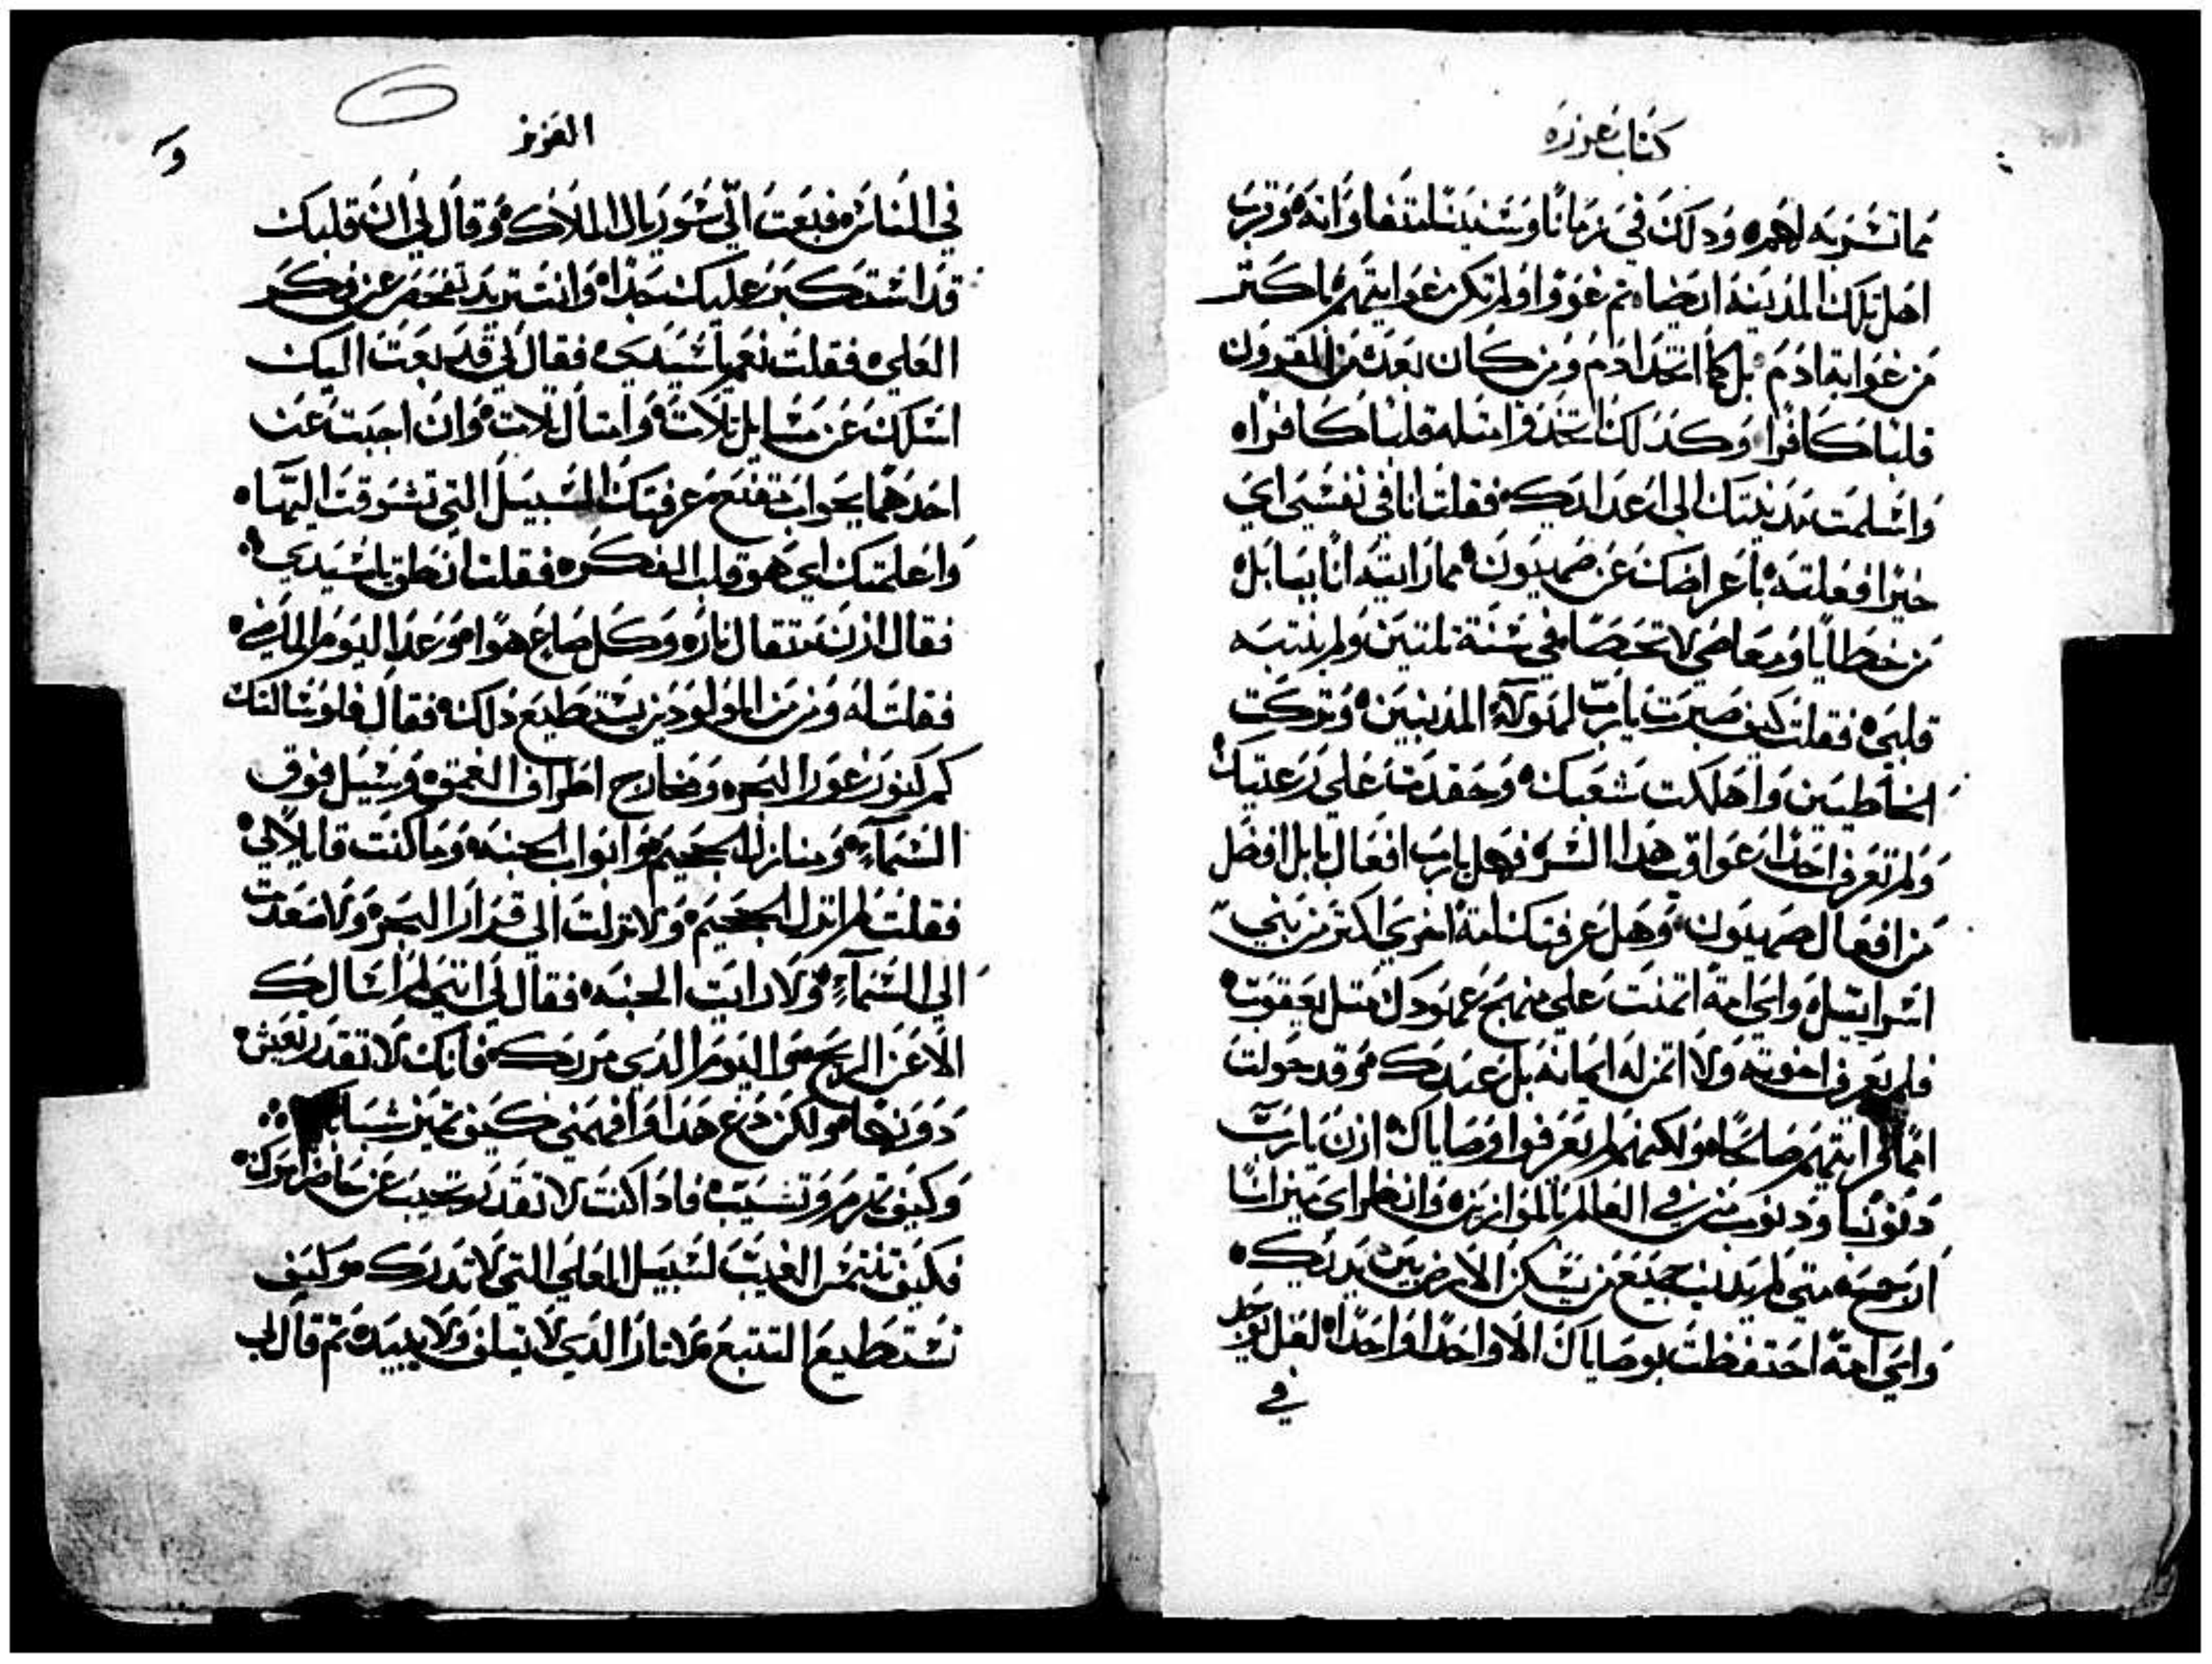 كتاب عزره
مما تشربه لهم ه ودلك في زمانا وسنينا لتفاوانه وقرب
اهل تلك المدينه ايضا ه ثم غووا ولم تكن غوايتهم باكتر
من غواية ادم بل كما اتخد ادم ومن كان بعده من القرون
قلبا كافرا وكدلك اتخدوا متله قلبا كافرا ه
واسلمت مدينتك الى اعدايك فقلت انا في نفسي اي
خيرا فعلته باعراضك عن صهيون مما رايته انا ببابل
من خطايا ومعاصي لا تحصا في سنة تلتين ولم ينتبه
قلبي فقلت كيف صبرت يارب لهولاء المدنبين وتركت
الخاطيين واهلكت شعبك وحقدت على رعيتك
ولم تعرف احدا عواقب هدا الشر فهل يارب افعال بابل افضل
من افعال صهيون وهل عرفتك امة اخرى اكتر من بني
اسراييل واي امة اتمنت على منهج عهودك متل يعقوب
فلم يعرف اخوته ولا اتمن له امانه بل عبدك وقد جولت
امما رايتهم صالحا ولكنهم لم يعرفوا وصاياك ازن يارب
دنوبنا ودنوب من في العالم بالموازين وانظر اي ميزانا
ارجح متى لم يدنب جميع من يسكن الارض بين يديك
واي امة احتفظت بوصاياك الا واحدا واحدا لعل يوجد
في
العزيز
في الناس فبعت الي سوريال الملاك وقال لي ان قلبك
قد استكبر عليك جدا وانت تريد تفحص عن فكر
العلي فقلت نعم ياسيدي فقال لي قد بعت اليك
اسلك عن مسايل تلات وامتال تلات وان اجبت عن
احدهما بجواب تقنع عرفتك السبيل التي تشوقت اليها
واعلمتك اي هو قلب الفكره فقلت انطق ياسيدي
فقال ازن متقال نار وكل صاع هوا وعد اليوم الماضي
فقلت له ومن من المولودين يستطيع دلك فقال فلو سالتك
كم كنوز غور البحر ومخارج اطراف العمق وسيل فوق
السماء ومنازل الجحيم وابواب الجنه وما كنت قايلا لي
فقلت لم انزل الجحيم ولا نزلت الي قرار البحر ولا صعدت
الي السماء ولا رايت الجنه فقال لي انني لم اسالك
الا عن الريح والنار واليوم الدي مر بك فانك لا تقدر تعيش
دونها ولكن دع هدا وافهمني كيف تميز شبابك
وكيف تهرم وتشيب فادا كنت لا تقدر تجيب عن حاضر امرك
فكيف تلتمس الغيب لسبيل العلي التي لا تدرك وكيف
تستطيع التتبع الدي لا يتلف ولا يبيد ثم قال لي